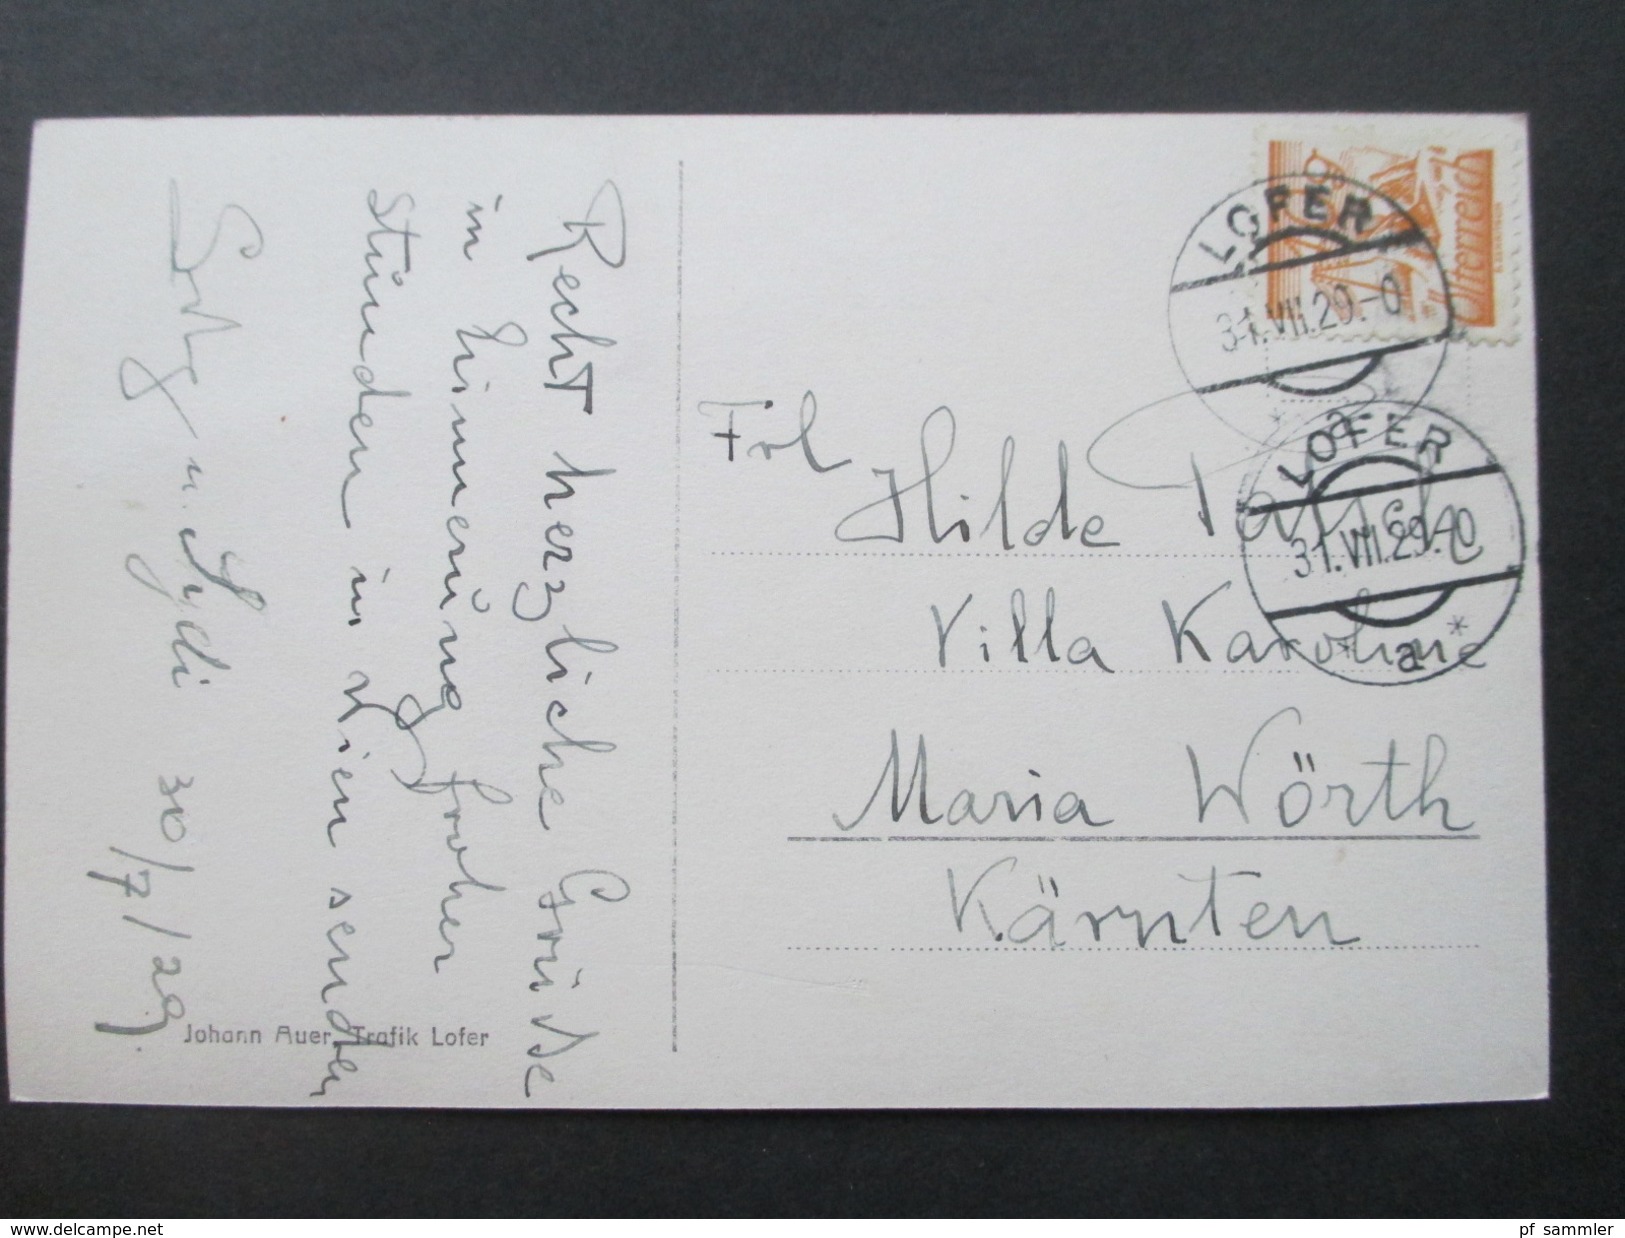 Recht herzliche Grüsse
in Erinnerung froher
Stunden in Wien senden
u. Lydi 30/7/29.
Johann Auer, Trafik Lofer
Österreich
LOFER
31.VII.29.-0
a
LOFER
31.VII.29.-0
a
Frl
Hilde
Villa Karoline
Maria Wörth
Kärnten
www.delcampe.net
pf_sammler